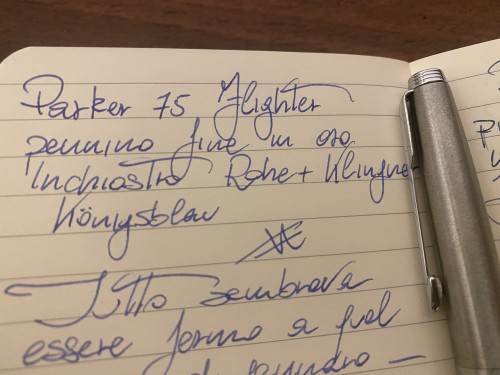 Parker 75 Flighter
pennino fine in oro
Inchiostro Rohr + Klingner
Königsblau
Tutto sembrava
essere fermo a quel